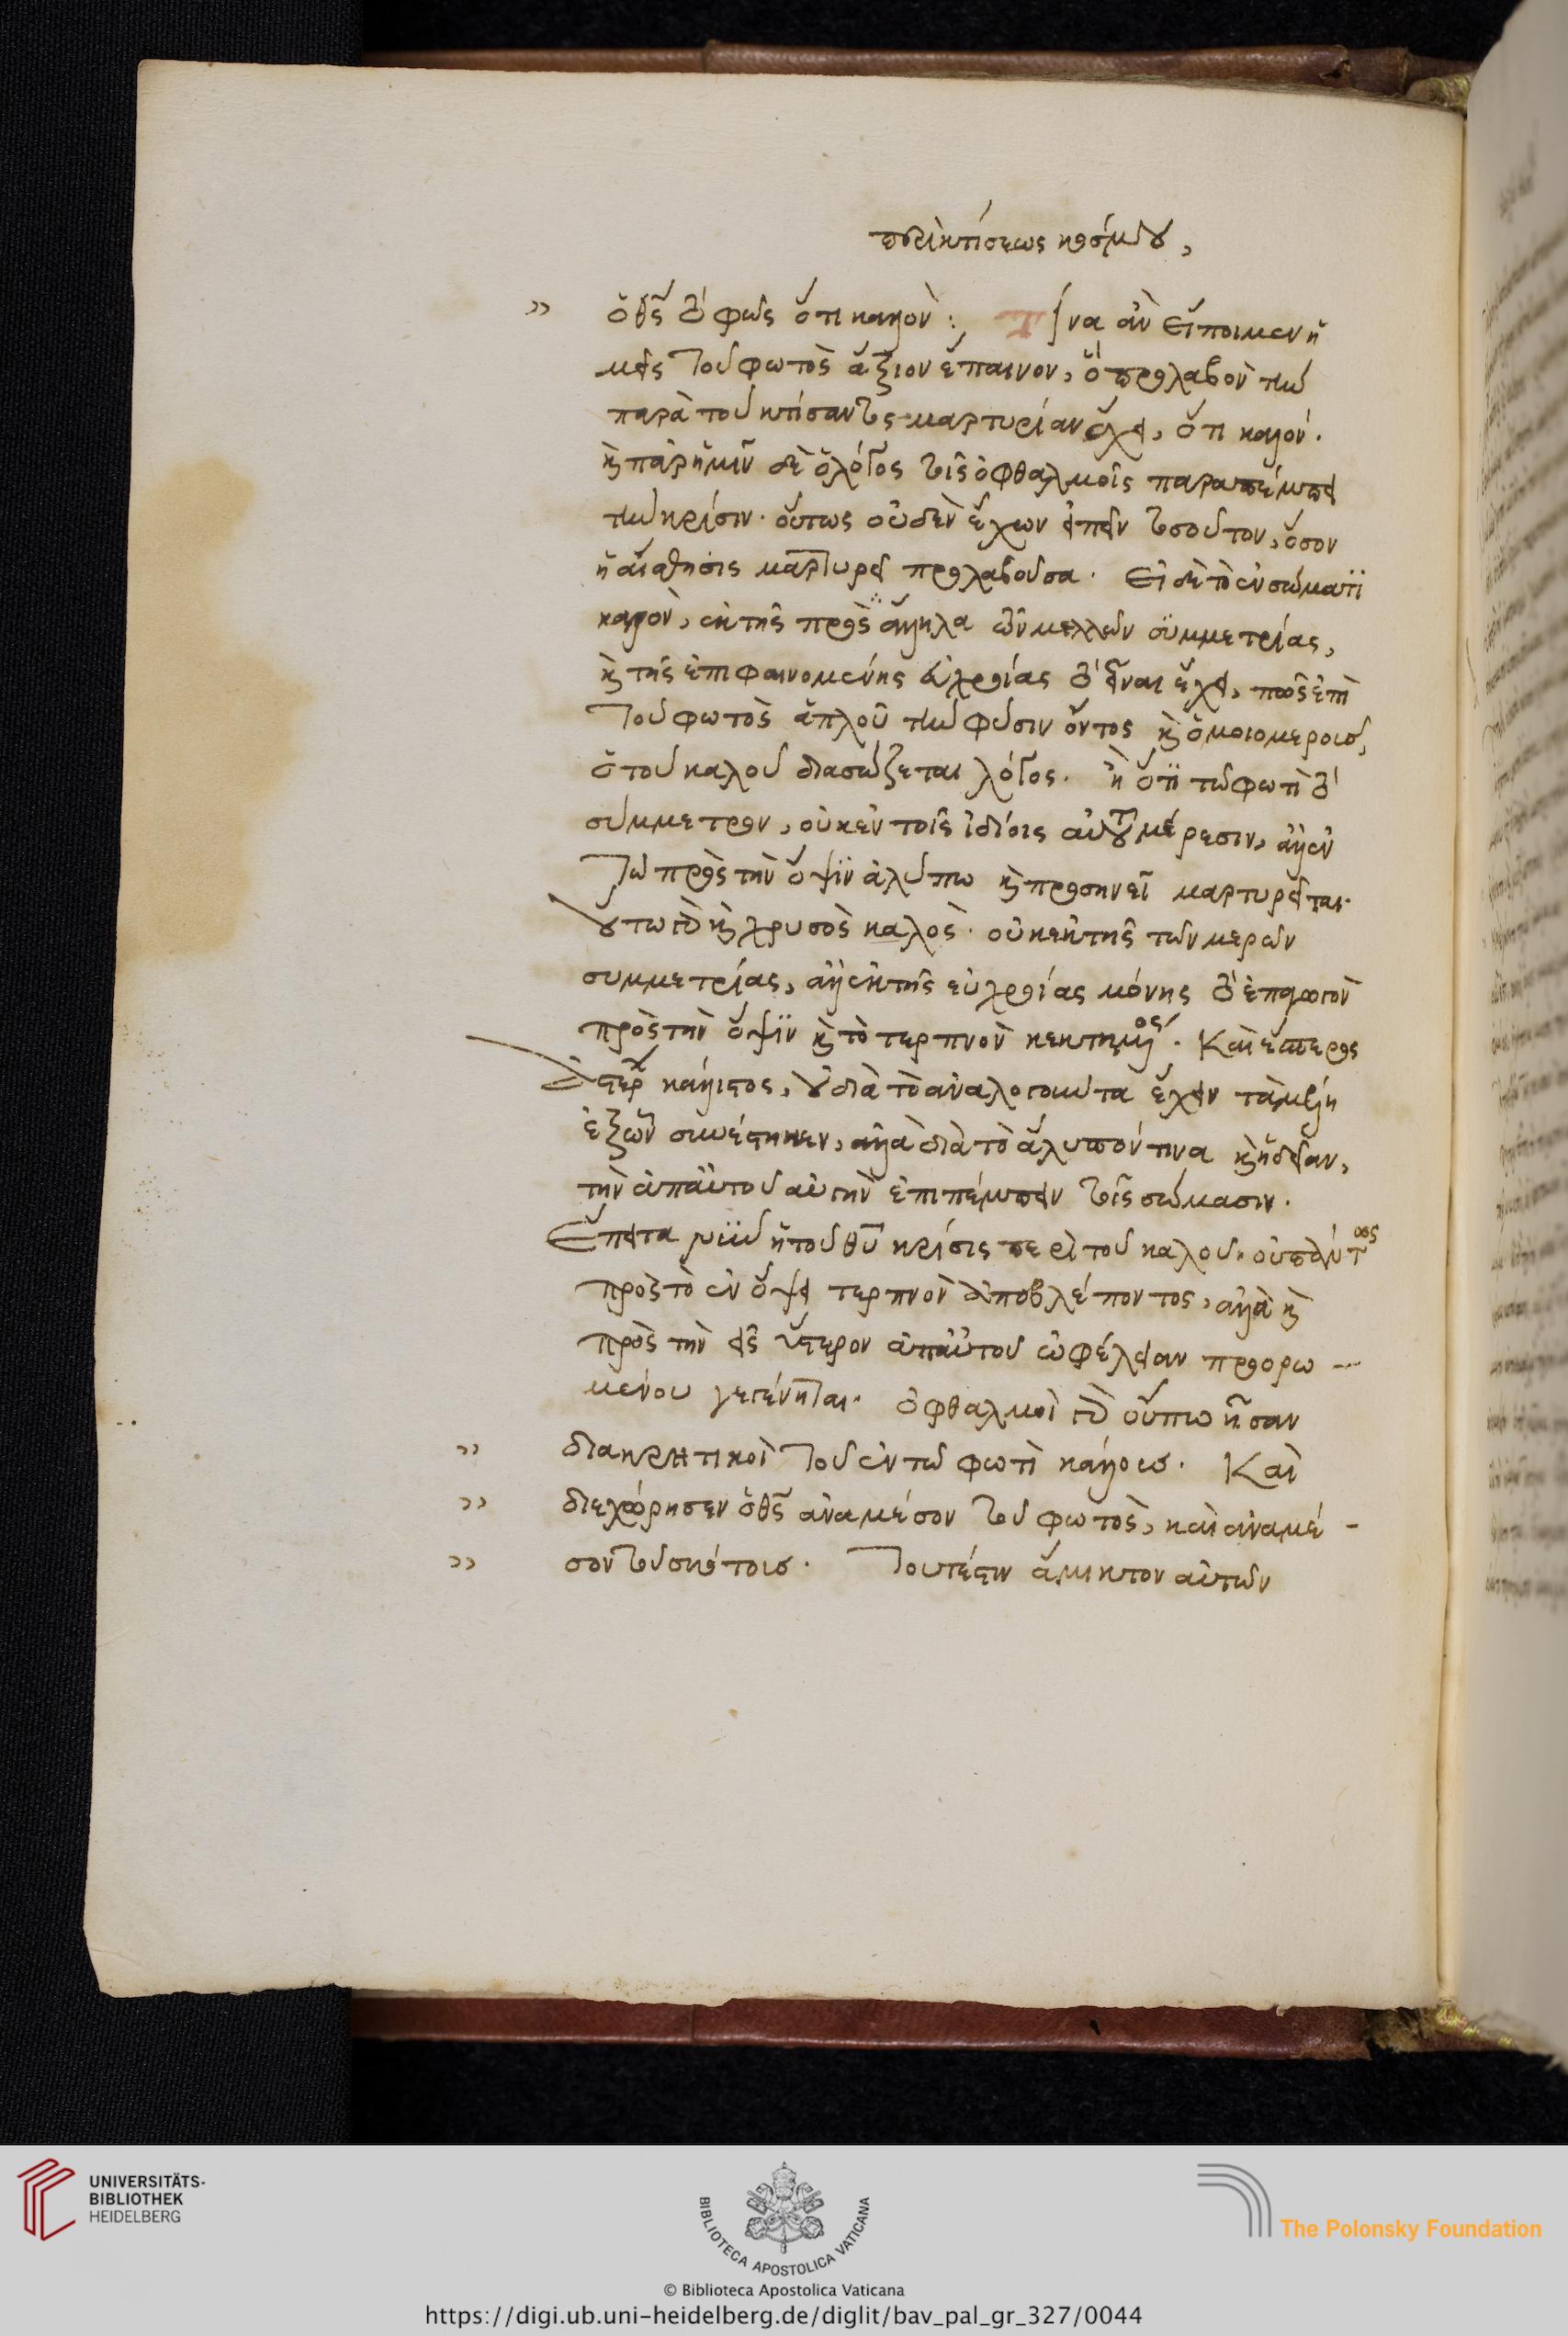 περὶ κτίσεως κόσμου,
ὁ θς̃ τὸ φῶς ὅτι καλὸν : Τίνα ἂν εἴποιμεν ἡ
μεῖς τοῦ φωτὸς ἄξιον ἔπαινον, ὃ προλαβὸν τὴν
παρὰ τοῦ κτίσαντος μαρτυρίαν ἔχει, ὅτι καλόν.
καὶ παρ' ἡμῖν δὲ ὁ λόγος τοῖς ὀφθαλμοῖς παραπέμπει
τὴν κρίσιν. οὕτως οὐδὲν ἔχων εἰπεῖν τοσοῦτον, ὅσον
ἡ αἴσθησις μαρτυρεῖ προλαβοῦσα. Εἰ δὲ τὸ ἐν σώματϊ
καλὸν, ἐκ τῆς πρὸς ἄλληλα τῶν μελλῶν συμμετρίας,
καὶ τῆς ἐπιφαινομένης εὐχροίας τὸ εἶναι ἔχει, πῶς ἐπὶ
τοῦ φωτὸς ἁπλοῦ τὴν φύσιν ὄντος καὶ ὁμοιομεροῦς,
ὁ τοῦ καλοῦ διασώζεται λόγος. ἢ ὅτϊ τῶ φωτὶ τὸ
σύμμετρον, οὐκ ἐν τοῖς ἰδίοις αὐτοῦ μέρεσιν, ἀλλ' ἐν
τῶ πρὸς τὴν ὄψϊν ἀλύπω καὶ προσηνεῖ μαρτυρεῖται.
οὕτω γὰρ καὶ χρυσὸς καλὸς. οὐκ ἐκ τῆς τῶν μερῶν
συμμετρίας, ἀλλ' ἐκ τῆς εὐχροίας μόνης τὸ ἐπαγωγὸν
πρὸς τὴν ὄψϊν καὶ τὸ τερπνὸν κεκτημένος. Καὶ ἕσπερος
ἀστέρων κάλλιστος, οὐ διὰ τὸ ἀναλογοῦντα ἔχειν τὰ μέρη
ἐξ ὧν συνέστηκεν, ἀλλὰ διὰ τὸ ἄλυπόν τινα καὶ ἡδεῖαν,
τὴν ἀπ' αὐτοῦ αὐγὴν ἐπιπέμπειν τοῖς σώμασιν.
Ἔπειτα νϋν ἡ τοῦ θυ̃ κρίσις περὶ τοῦ καλοῦ. οὐ πάντως
πρὸς τὸ ἐν ὄψει τερπνὸν ἀποβλέποντος, ἀλλὰ καὶ
πρὸς τὴν εἰς ὕστερον ἀπ' αὐτοῦ ὠφέλειαν προορω –
μένου γεγένηται. ὀφθαλμοὶ γὰρ οὔπω ἦσαν
διακριτικοὶ τοῦ ἐν τῶ φωτὶ κάλλους. Καὶ
διεχώρησεν ὁ θς̃ ἀναμέσον τοῦ φωτὸς, καὶ ἀναμέ –
σον τοῦ σκότους. Τουτέστιν ἄμικτον αὐτῶν
UNIVERSITÄTS-
BIBLIOTHEK
HEIDELBERG
BIBLIOTECA APOSTOLICA VATICANA
The Polonsky Foundation
© Biblioteca Apostolica Vaticana
https://digi.ub.uni-heidelberg.de/diglit/bav_pal_gr_327/0044